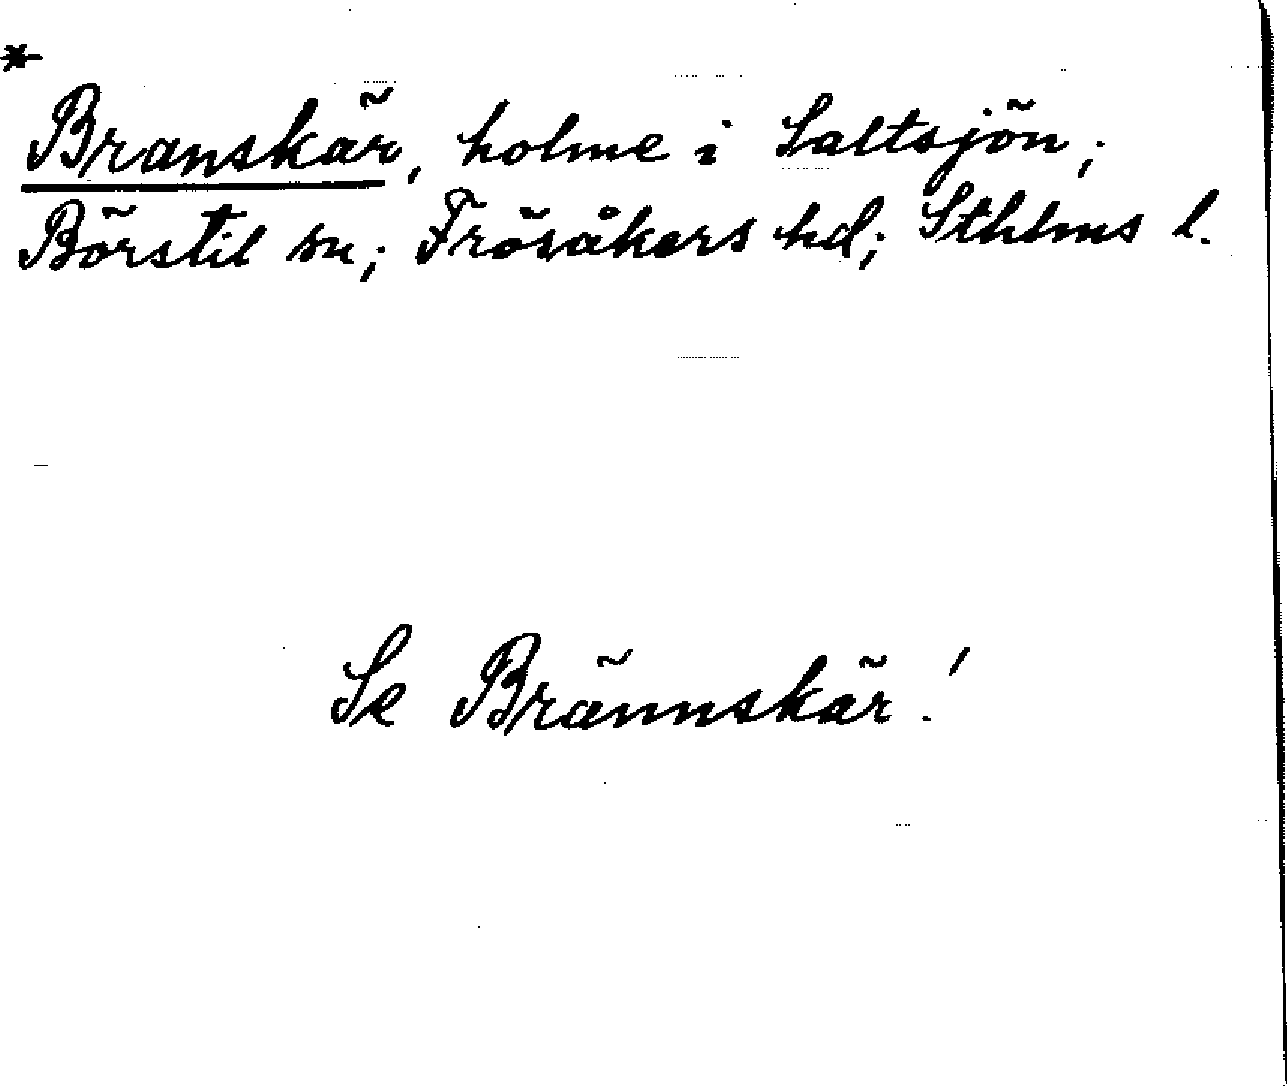 *
Branskär, holme i Saltsjön;
Börstil sn; Frösåkers hd; Sthlms l.
Se Brännskär!